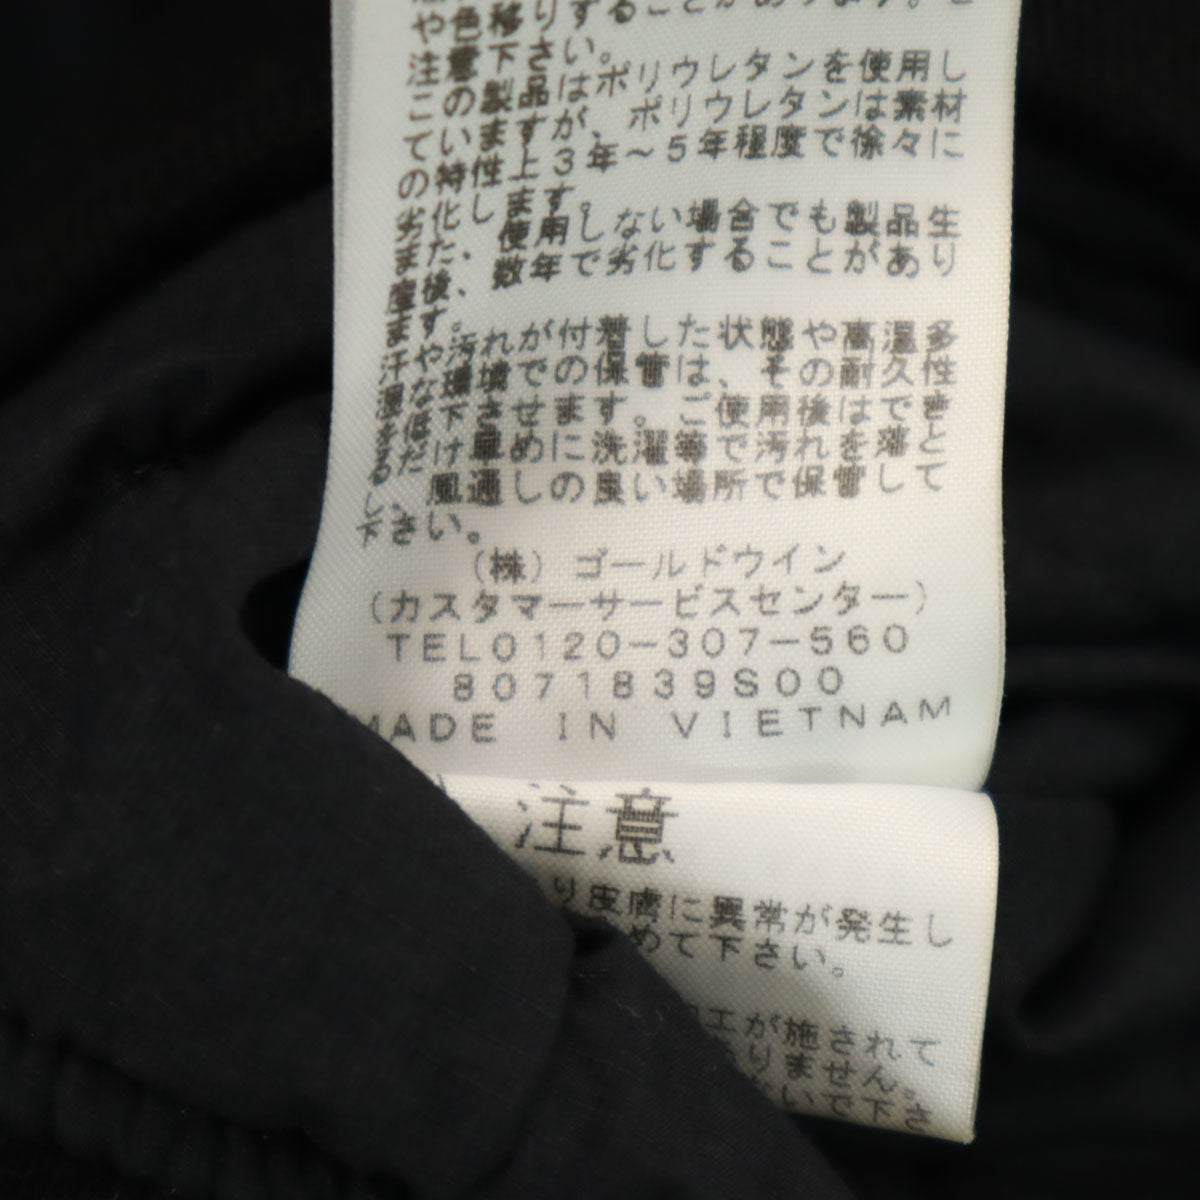 や色移りすることがあります。ご
注意下さい。
この製品はポリウレタンを使用し
ていますが、ポリウレタンは素材
の特性上3年～5年程度で徐々に
劣化します。
また、使用しない場合でも製品生
産後、数年で劣化することがあり
ます。
汗や汚れが付着した状態や高温多
湿な環境での保管は、その耐久性
を低下させます。ご使用後はでき
るだけ早めに洗濯等で汚れを落と
し、風通しの良い場所で保管して
下さい。
(株)ゴールドウイン
(カスタマーサービスセンター)
TEL0120-307-560
8071839S00
MADE IN VIETNAM
注意
り皮膚に異常が発生し
めて下さい。
工が施されて
りません。
いで下さ